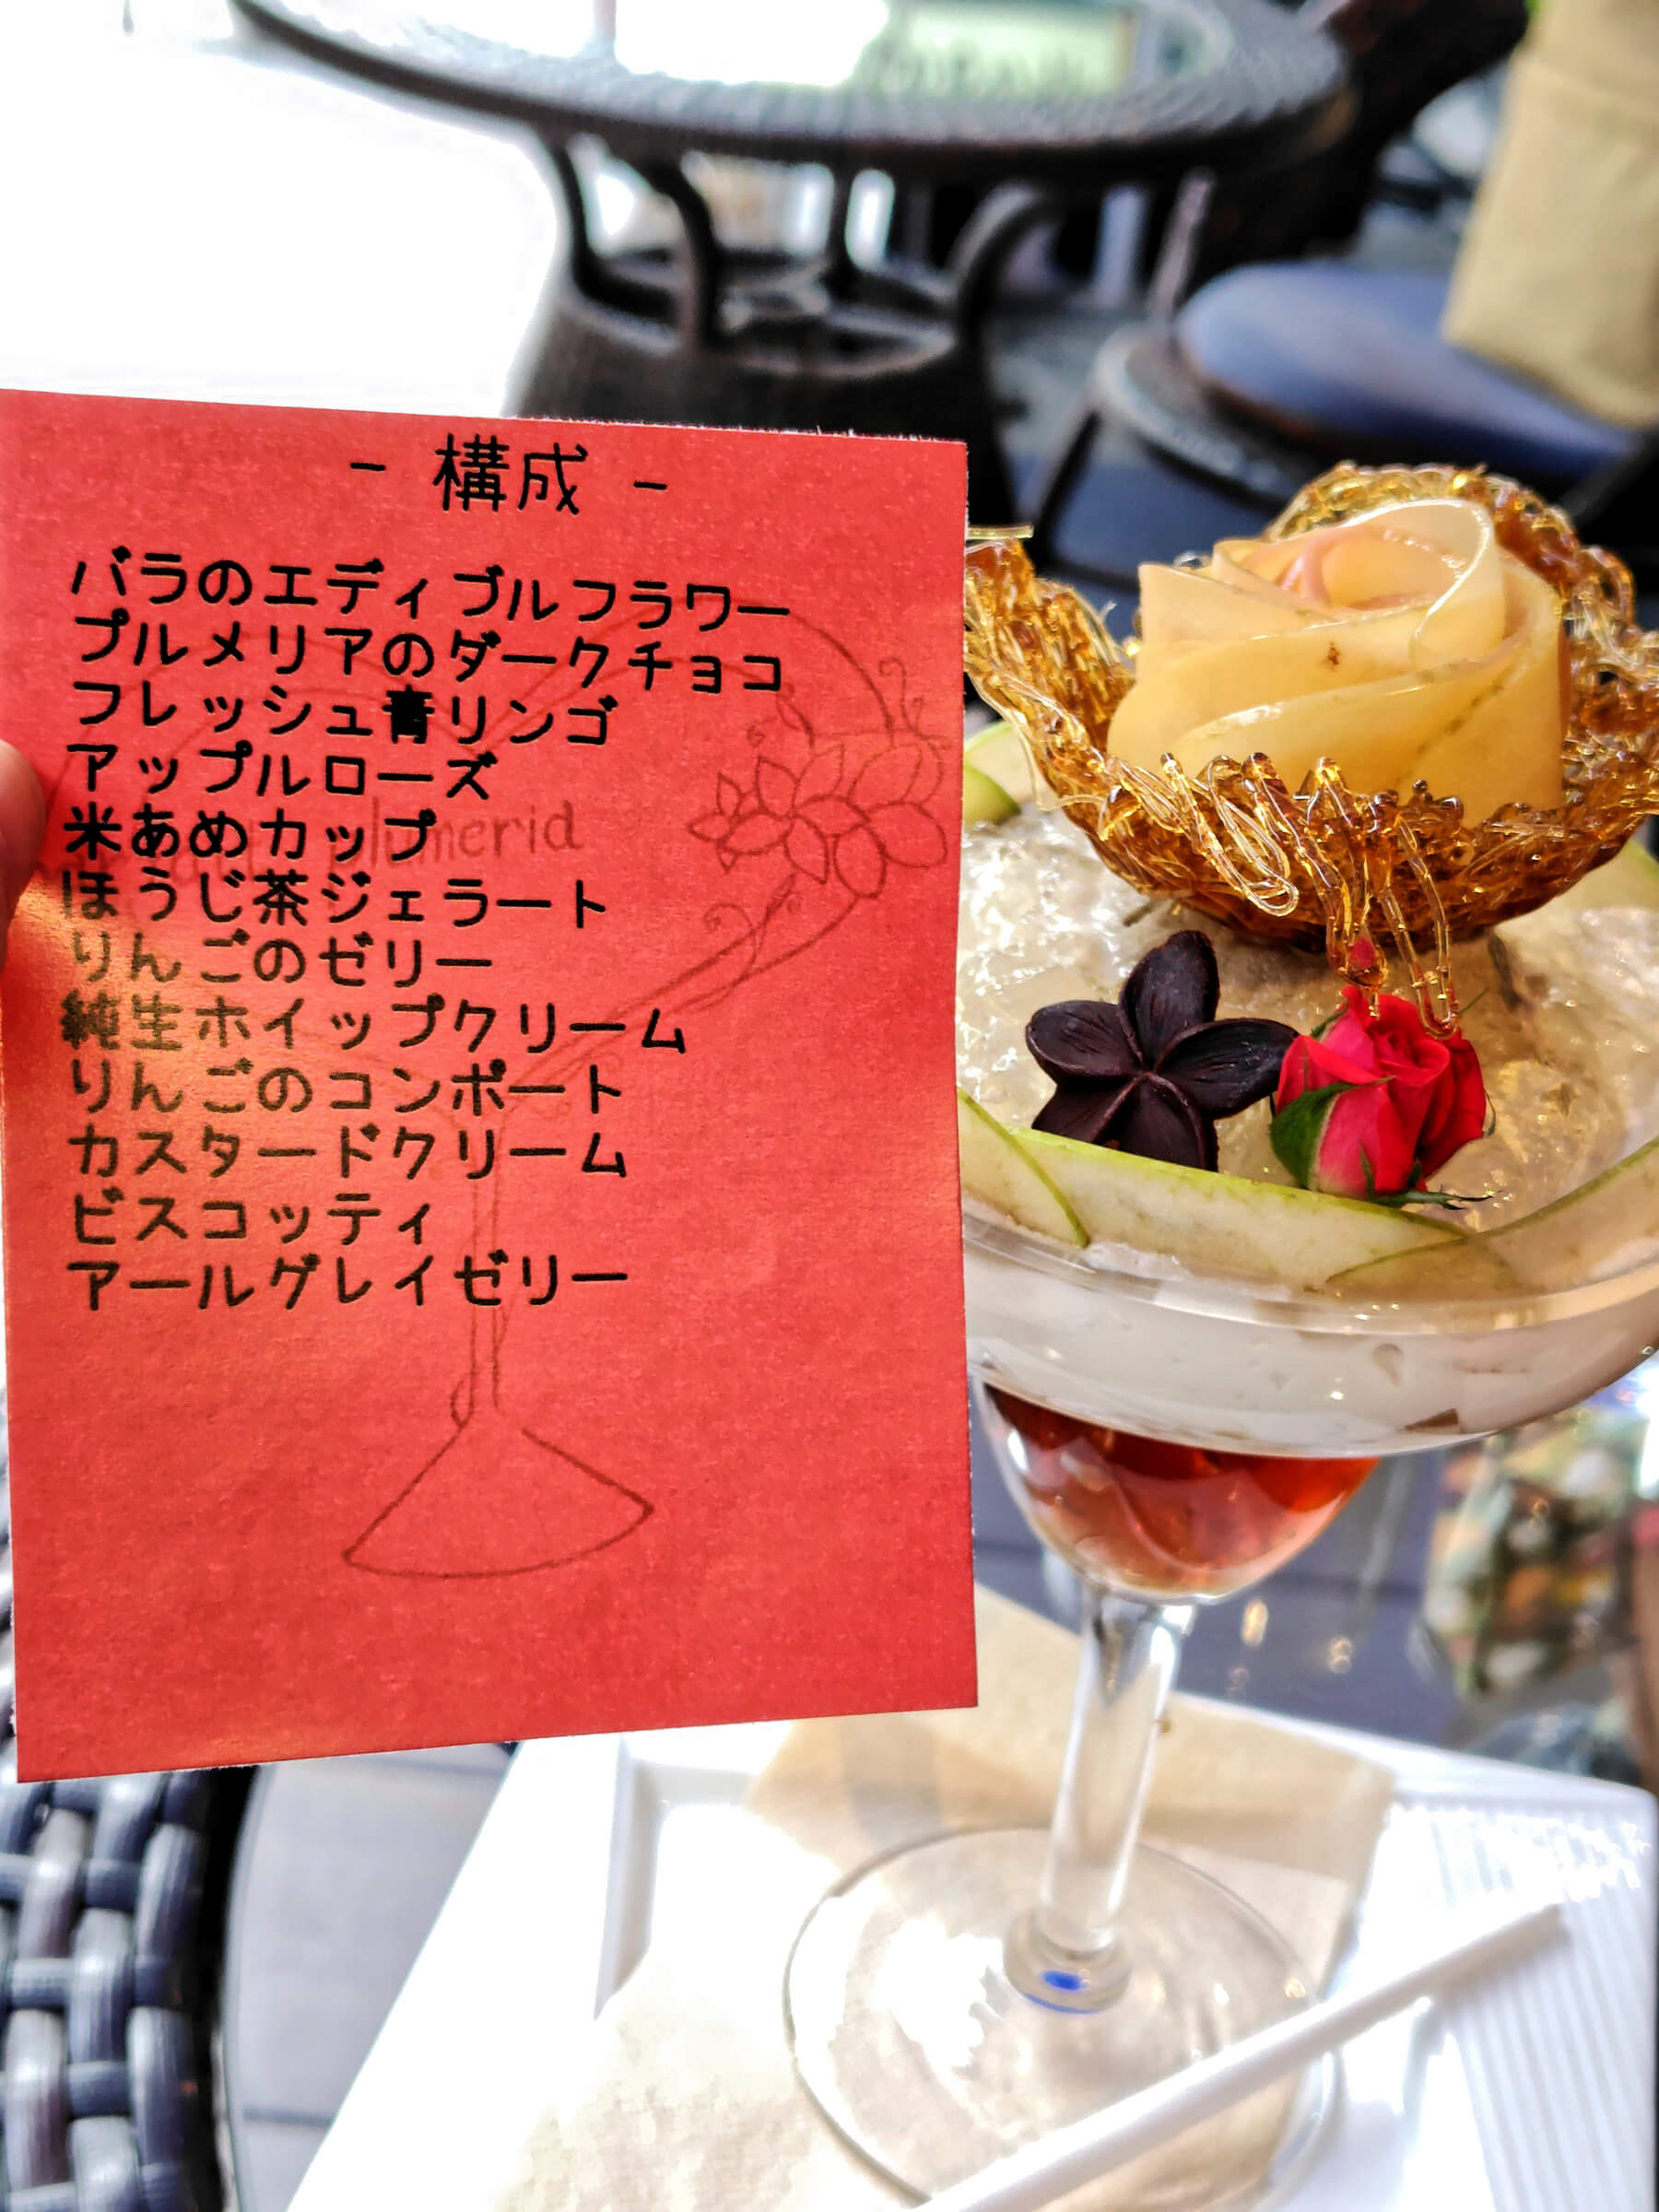 - 構成 -
バラのエディブルフラワー
プルメリアのダークチョコ
フレッシュ青リンゴ
アップルローズ
米あめカップ
ほうじ茶ジェラート
りんごのゼリー
純生ホイップクリーム
りんごのコンポート
カスタードクリーム
ビスコッティ
アールグレイゼリー